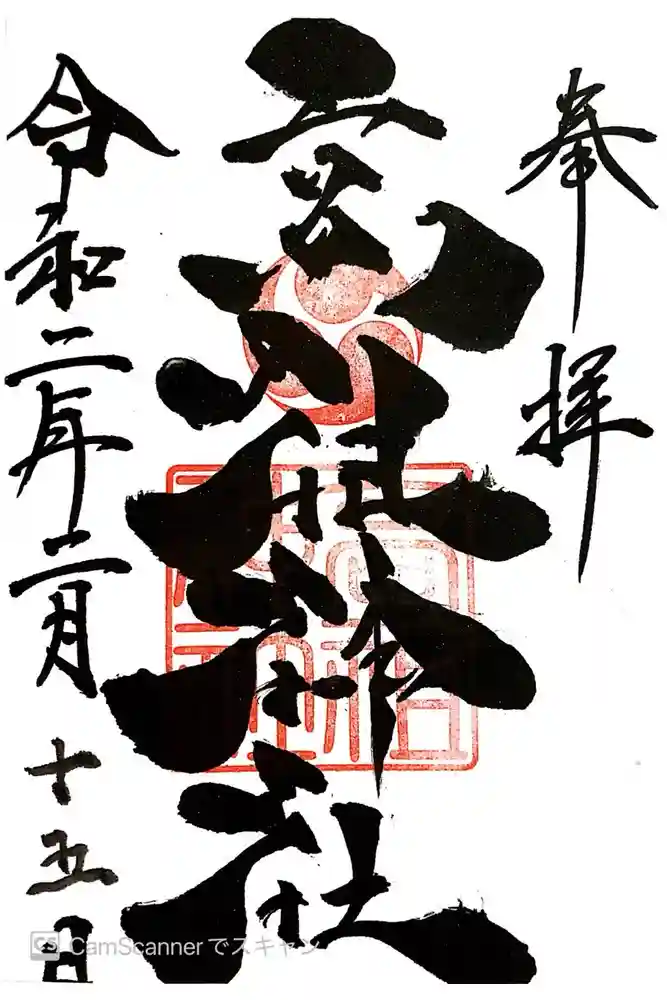 奉拝
神社
令和二年二月十五日
CamScannerでスキャン